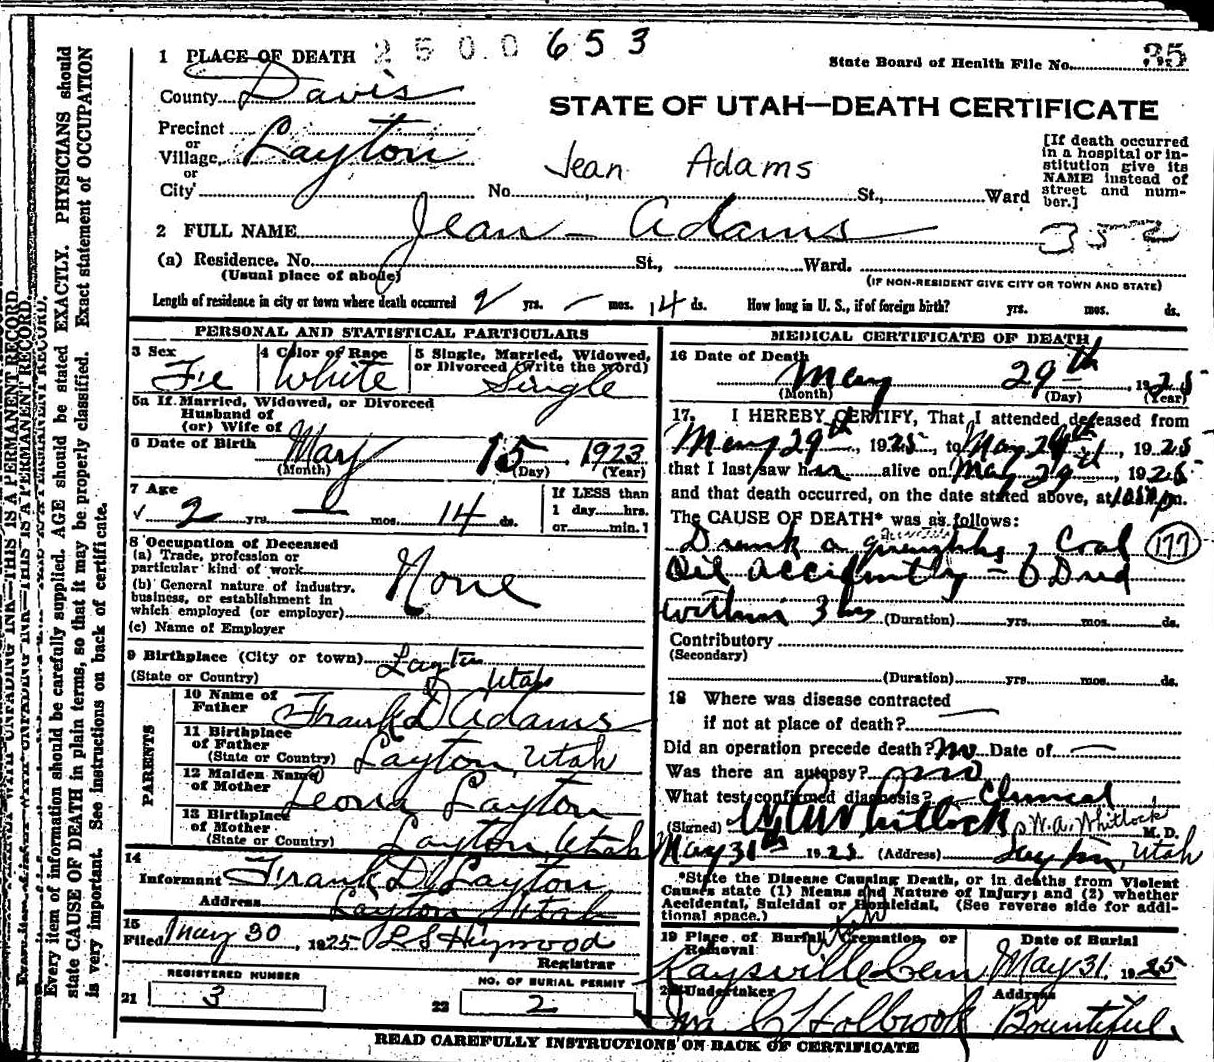 1 PLACE OF DEATH 2500653
State Board of Health File No. 35
County Davis
STATE OF UTAH—DEATH CERTIFICATE
Precinct
or
Village, Layton
or
City
Jean Adams
No. St., Ward
[If death occurred
in a hospital or in-
stitution give its
NAME instead of
street and num-
ber.]
2 FULL NAME Jean - Adams
352
(a) Residence. No. St., Ward.
(Usual place of abode)
(IF NON-RESIDENT GIVE CITY OR TOWN AND STATE)
Length of residence in city or town where death occurred 2 yrs. — mos. 14 ds. How long in U. S., if of foreign birth? yrs. mos. ds.
PERSONAL AND STATISTICAL PARTICULARS
3 Sex 4 Color or Race 5 Single, Married, Widowed,
or Divorced (write the word)
Fe White Single
5a If Married, Widowed, or Divorced
Husband of
(or) Wife of
6 Date of Birth May 15 1923
(Month) (Day) (Year)
7 Age
2 yrs. — mos. 14 ds.
If LESS than
1 day hrs.
or min. ?
8 Occupation of Deceased
(a) Trade, profession or
particular kind of work
None
(b) General nature of industry,
business, or establishment in
which employed (or employer)
(c) Name of Employer
9 Birthplace (City or town) Layton
(State or Country) Utah
PARENTS
10 Name of
Father Frank D Adams
11 Birthplace
of Father
(State or Country) Layton, Utah
12 Maiden Name
of Mother Leona Layton
13 Birthplace
of Mother
(State or Country) Layton, Utah
14
Informant Frank D Layton
Address Layton Utah
15
Filed May 30, 1925 L S Heywood
Registrar
REGISTERED NUMBER
21 3
NO. OF BURIAL PERMIT
22 2
MEDICAL CERTIFICATE OF DEATH
16 Date of Death
May 29th 1925
(Month) (Day) (Year)
17. I HEREBY CERTIFY, That I attended deceased from
May 29th, 1925, to May 29th, 1925
that I last saw her alive on May 29th, 1925
and that death occurred, on the date stated above, at m.
The CAUSE OF DEATH* was as follows:
Drank a quantity of Coal 177
Oil accidently - Died
within 3 hrs (Duration) yrs. mos. ds.
Contributory
(Secondary)
(Duration) yrs. mos. ds.
18 Where was disease contracted
if not at place of death? —
Did an operation precede death? no Date of —
Was there an autopsy? no
What test confirmed diagnosis? Clinical
(Signed) W A Whitlock W.A. Whitlock M. D.
May 31st 1925 (Address) Layton, Utah
*State the Disease Causing Death, or in deaths from Violent
Causes state (1) Means and Nature of Injury; and (2) whether
Accidental, Suicidal or Homicidal. (See reverse side for addi-
tional space.)
19 Place of Burial, Cremation, or
Removal
Date of Burial
Kaysville Cem May 31. 1925
Undertaker Address
Holbrook Bountiful
READ CAREFULLY INSTRUCTIONS ON BACK OF CERTIFICATE
Every item of information should be carefully supplied. AGE should be stated EXACTLY. PHYSICIANS should
state CAUSE OF DEATH in plain terms, so that it may be properly classified. Exact statement of OCCUPATION
is very important. See instructions on back of certificate.